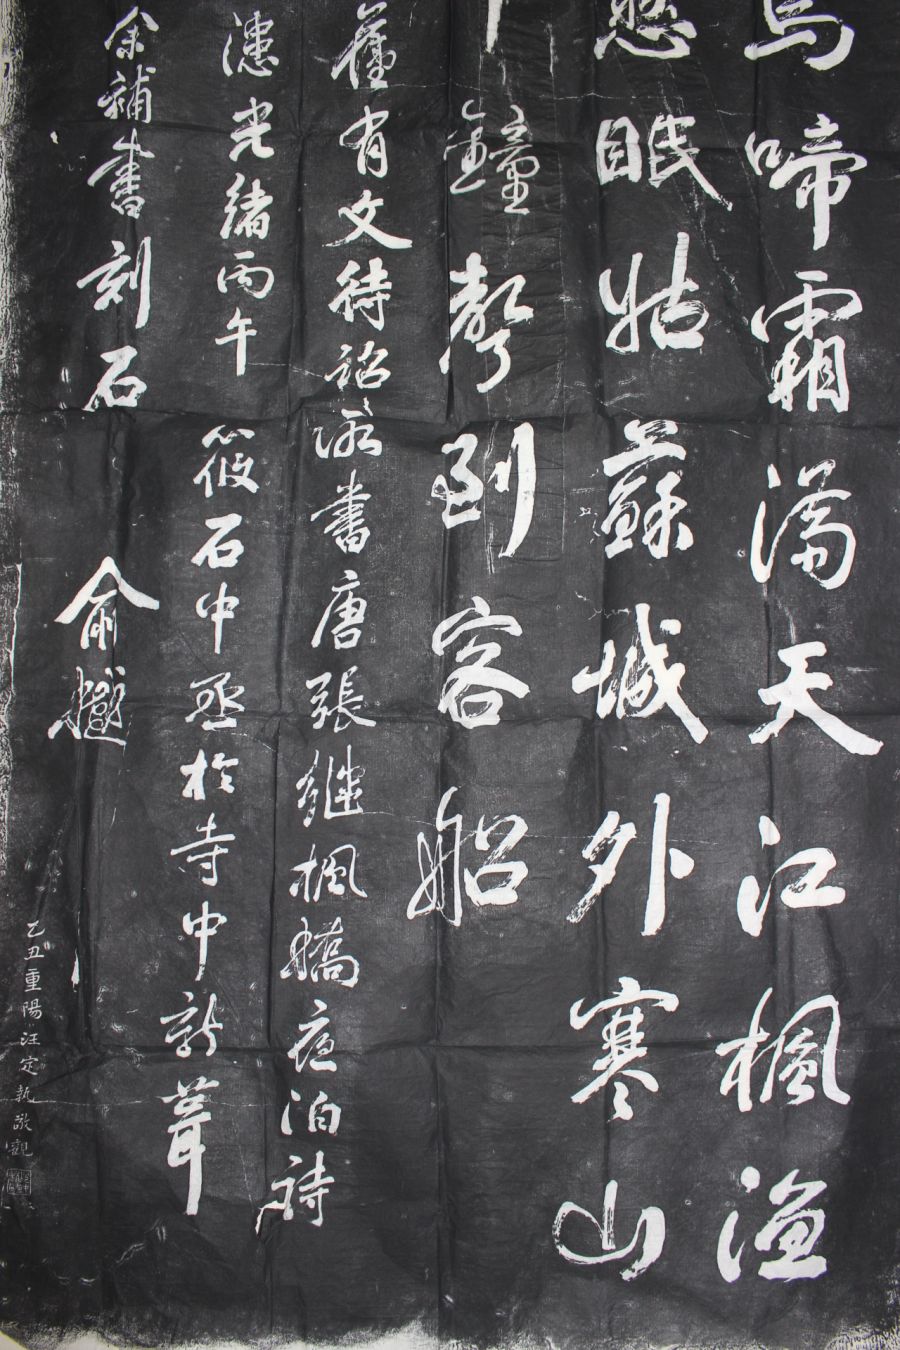 烏啼霜滿天江楓漁
愁眠姑蘇城外寒山
鐘聲到客船
舊有文待詔所書唐張繼楓橋夜泊詩
漶光緒丙午筱石中丞於寺中新葺
余補書刻石 俞樾
乙丑重陽汪定執敬觀